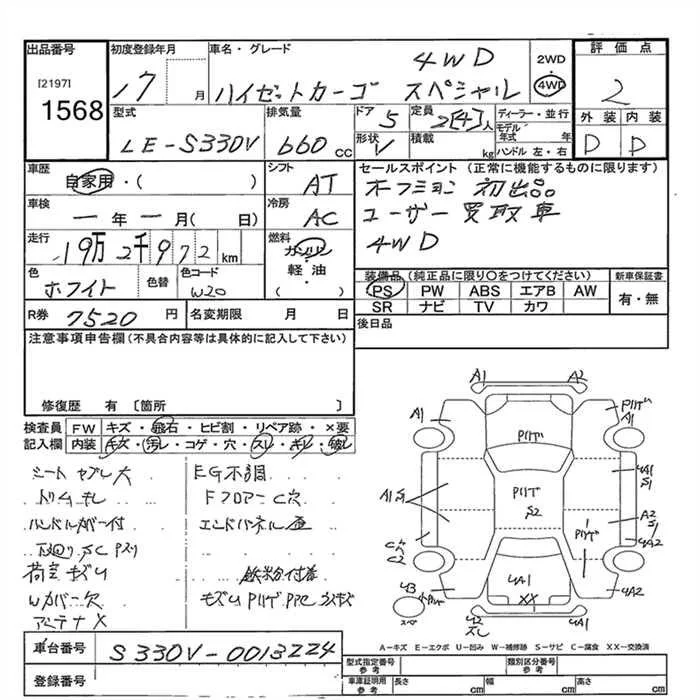 出品番号
[2197]
1568
初度登録年月
17
月
車名・グレード
4WD
ハイゼットカーゴ スペシャル
2WD
4WD
評価点
2
外装 内装
D D
型式
LE-S330V
排気量
660 cc
ドア
5
定員
2[4]人
形状
V
積載
kg
ディーラー・並行
モデル年式 年
ハンドル 左・右
車歴
自家用・( )
シフト
AT
セールスポイント (正常に機能するものに限ります)
初出品
ユーザー買取車
4WD
車検
一年一月(日)
冷房
AC
走行
19万2千972km
燃料
ガソリン
軽・油
( )
色
ホワイト
色替
色コード
W20
装備品 (純正品に限り○をつけてください)
新車保証書
PS PW ABS エアB AW
SR ナビ TV カワ
有・無
R券
7520円
名変期限 月 日
後日品
注意事項申告欄(不具合内容等は具体的に記入して下さい)
修復歴 有 〔箇所 〕
検査員 FW キズ・飛石・ヒビ割・リペア跡・×要
記入欄 内装 キズ・汚レ・コゲ・穴・スレ・キレ・破レ
シートヤブレ大
EG不調
Fフロアーc穴
ハンドルカバー付
下回りSC
鉄粉付着
Wカバー欠
アンテナX
A1 A2
A1
A1
A1 S1
S2
4A1
S1
A2
S1
4A2
C穴
C2
4A1
XX
4B
スペア
42
4A1
4A2
A-キズ E-エクボ U-凹み W-補修跡 S-サビ C-腐食 XX-交換済
車台番号
S330V-0013224
登録番号
型式指定番号 参考
類別区分番号 参考
車庫証明用 参考
長さ cm 幅 cm 高さ cm